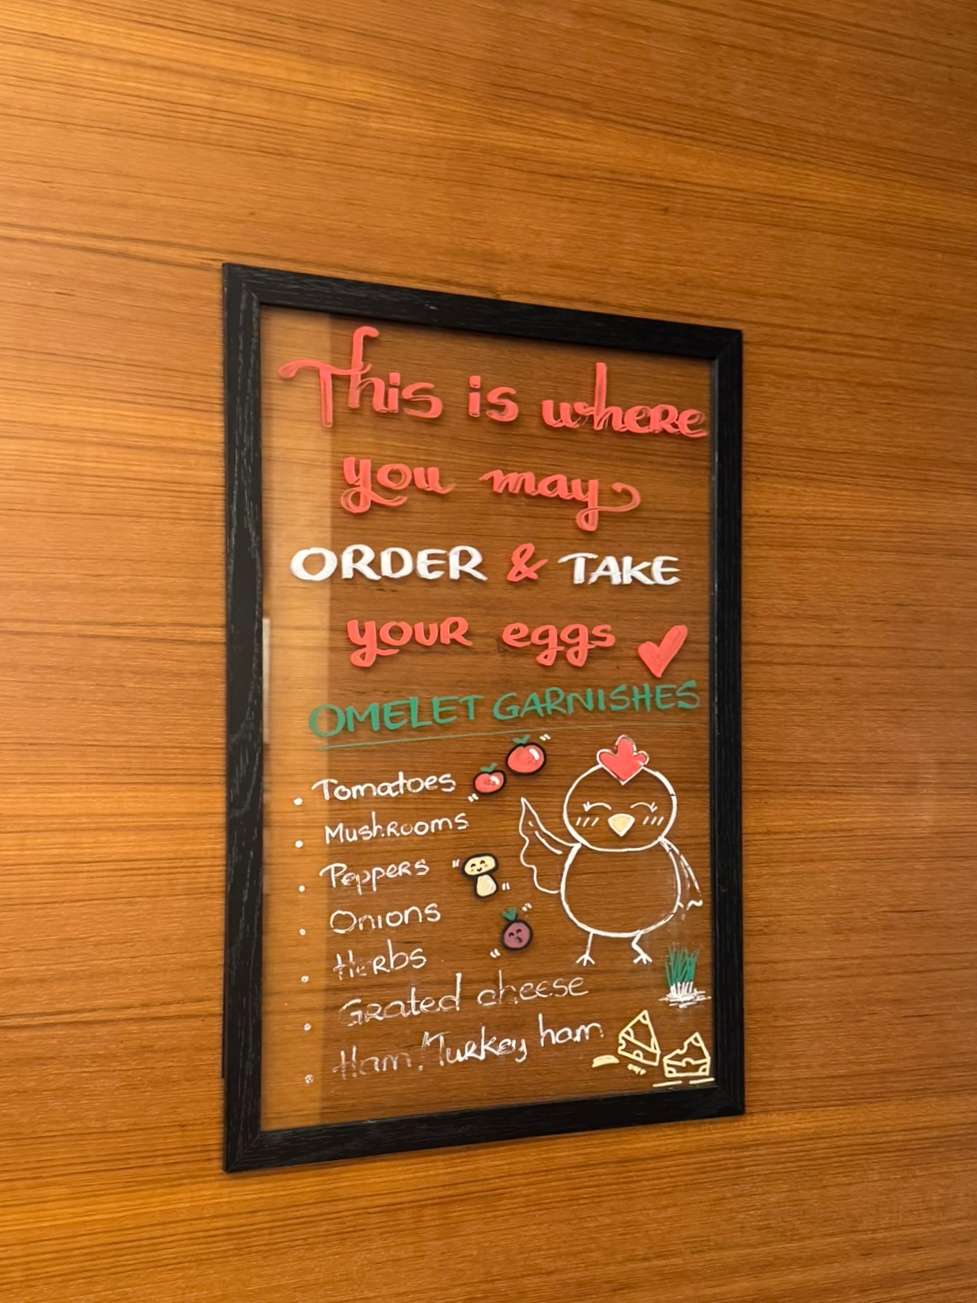 This is where
you may
ORDER & TAKE
your eggs
OMELET GARNISHES
. Tomatoes
. Mushrooms
. Peppers
. Onions
. Herbs
. Grated cheese
. Ham/Turkey ham